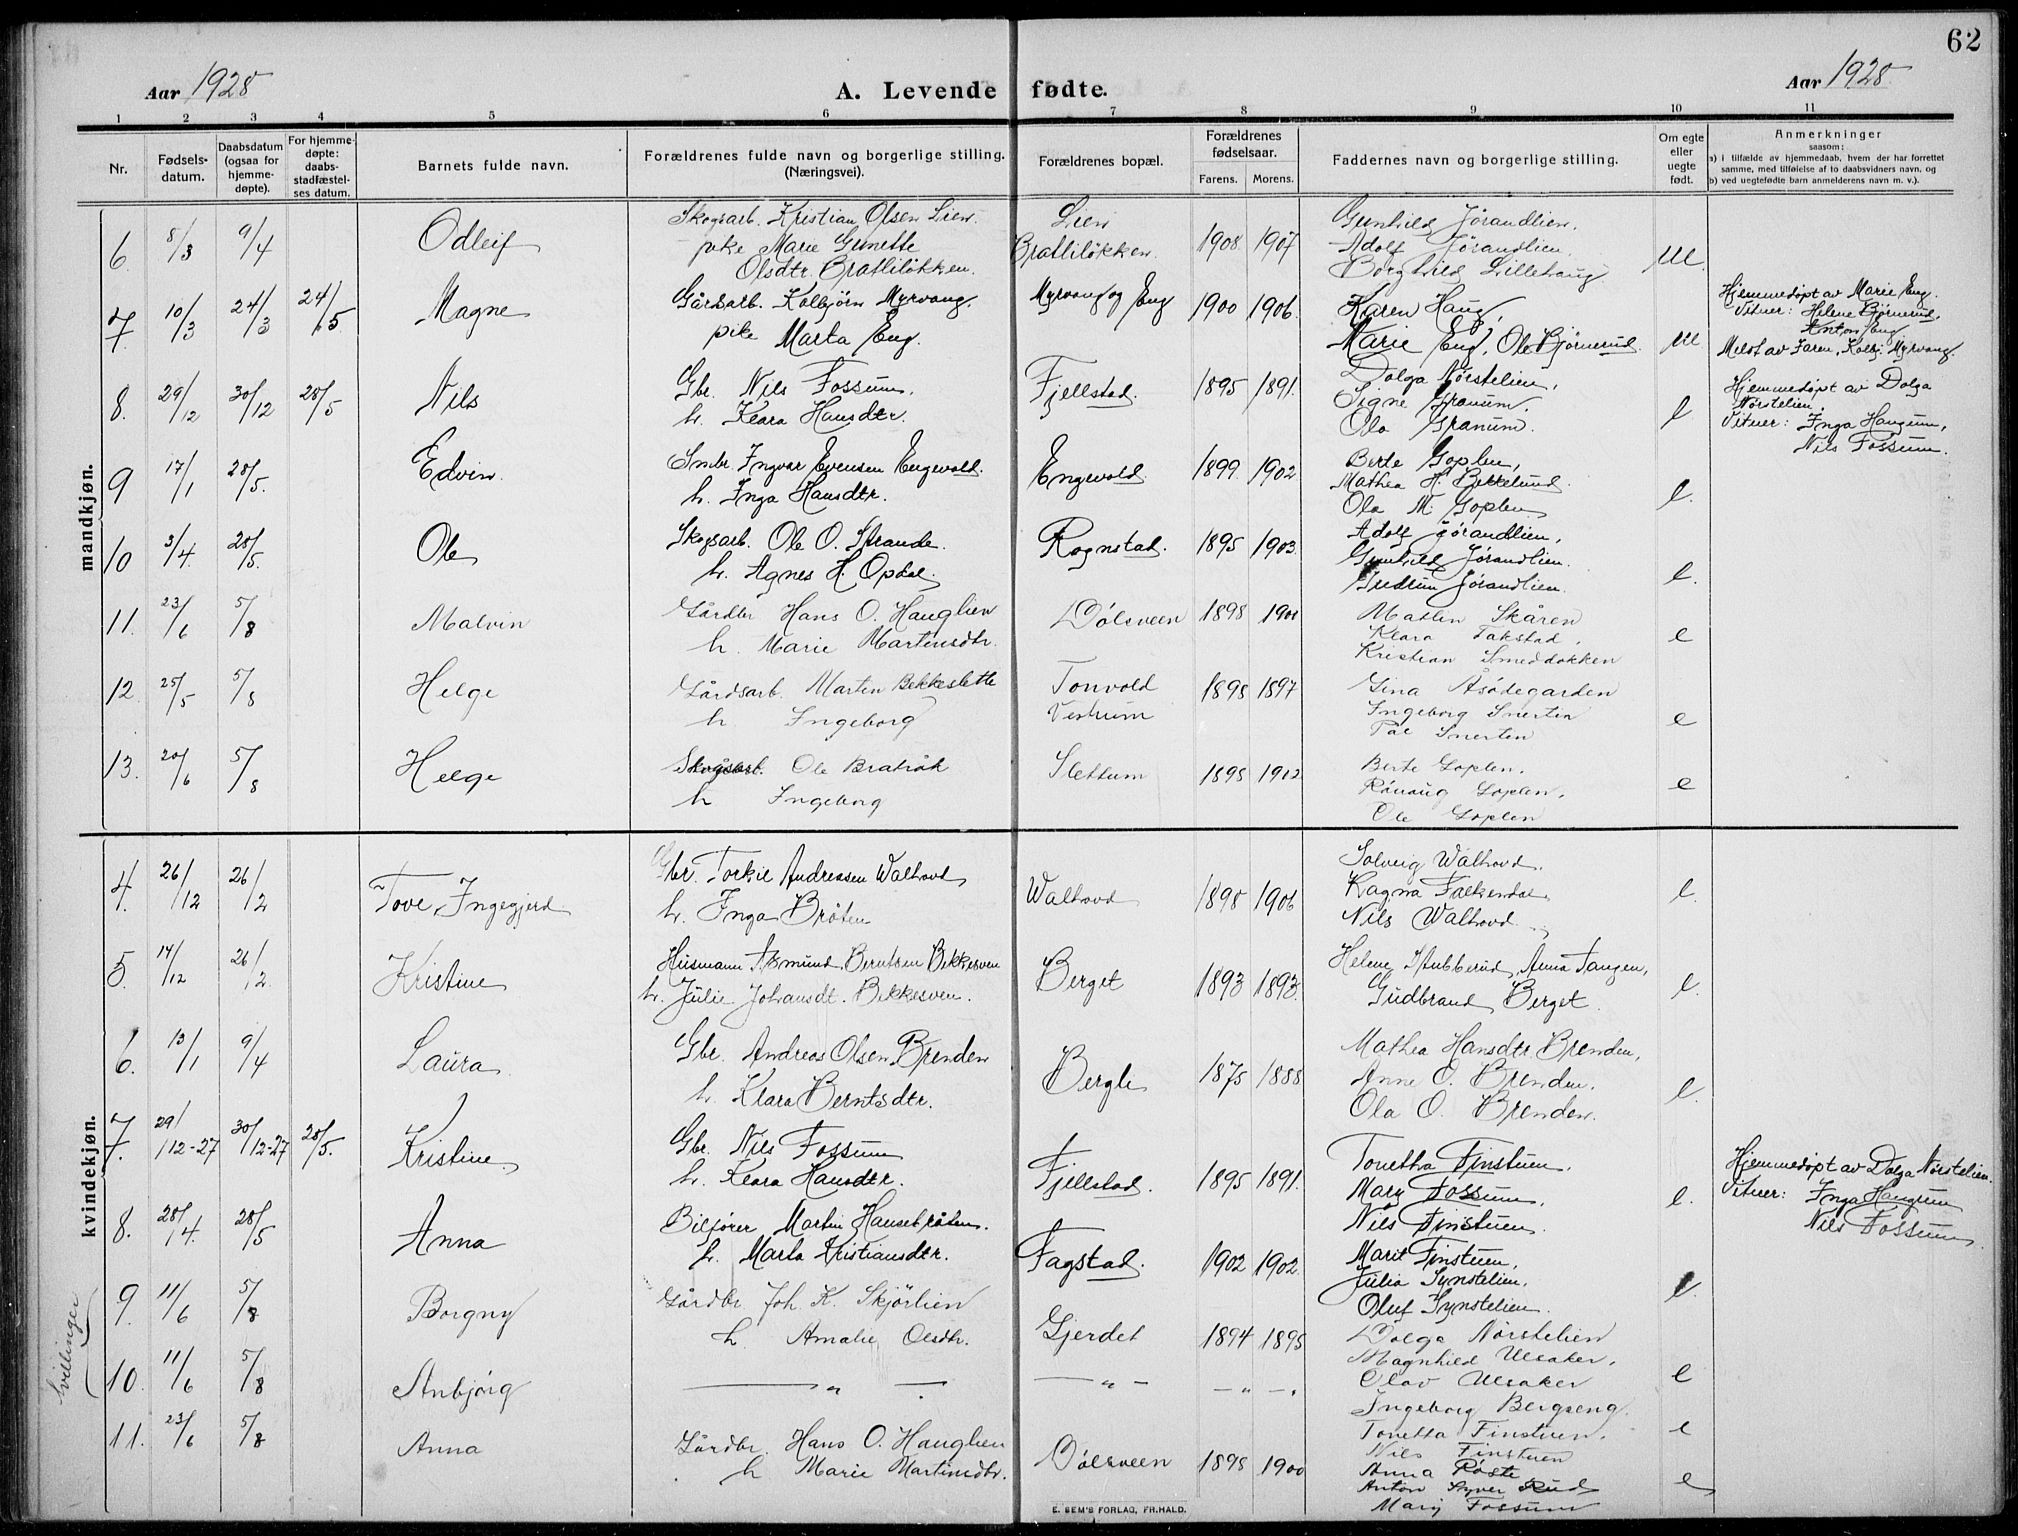 62
Aar 1928
A. Levende fødte.
Aar 1928
1 2 3 4 5 6 7 8 9 10 11
Nr.
Fødsels-
datum.
Daabsdatum
(ogsaa for
hjemme-
døpte).
For hjemme-
døpte:
daabs-
stadfæstel-
ses datum.
Barnets fulde navn.
Forældrenes fulde navn og borgerlige stilling.
(Næringsvei).
Forældrenes bopæl.
Forældrenes
fødselsaar.
Farens. Morens.
Faddernes navn og borgerlige stilling.
Om egte
eller
uegte
født.
Anmerkninger
saasom:
a) i tilfælde av hjemmedaab, hvem der har forrettet
samme, med tilføielse af to daabsvidners navn, og
b) ved uegtefødte barn anmelderens navn m. v.).
mandkjøn.
6. 8/3 9/4 Odleif
Skogsarb. Kristian Olsen Lien.
pike Marie Gunette
Olsdtr. Bratliløkken.
Lien
Bratliløkken.
1908 1907
Gunhild Jørandlien.
Adolf Jørandlien.
Borghild Lillehaug
7. 10/3 24/3 24/5 Magne
Gårdsarb. Kolbjørn Myrvang.
pike Marta Eng.
Myrvang og Eng
1900 1906.
Karen Haug,
Marie Eng, Ole Bjørnerud
Hjemmedøpt av Marie Eng.
Vitner: Helene Bjørnerud,
Anton Eng
Melst av Faren, Kolbj. Myrvang.
8. 29/12 30/12 28/5 Nils
Gbr. Nils Fossum.
h. Klara Hansdtr.
Fjellstad.
1895 1891.
Dolga Nørstelien,
Signe Granum.
Ola Granum.
e
Hjemmedøpt av Dolga
Nørstelien.
Vitner: Inga Haugum,
Nils Fossum.
9 17/1 28/5. Edvin.
Smbr. Ingvar Evensen Engevold.
h. Inga Hansdtr.
Engevold.
1899. 1902
Berte Goplen,
Mathea H. Bekkelund.
Ola M. Goplen
e.
10 3/4. 28/5. Ole
Skogsarb. Ole O. Strande.
h. Agnes H. Opdal.
Rognstad.
1895 1903.
Adolf Jørandlien,
Gunhild Jørandlien.
Gudrun Jørandlien.
e.
11. 23/6 5/8 Malvin
Gårdbr Hans O. Hauglien
h. Marie Martinsdtr.
Dølsveen
1898
Mathea Skåren
Klara Takstad.
Kristian Smeddokken
e
12 25/5 5/8 Helge
Gårdsarb. Martin Bekkesletta
h Ingeborg
Tonvold
Vestrum
1898 1897
Gina Åsødegarden
Ingeborg Snerten
Pål Snerten
e
13. 20/6 5/8 Helge
Skogsarb. Ole Bratråk
h Ingeborg
Slettum
1898 1902
Berte Goplen.
Rønaug Goplen.
Ole Goplen
e
kvindekjøn.
4. 26/12 26/2 Tove Ingegjerd
Gbr. Torkil Andreasen Walhovd
h. Inga Bråten
Walhovd
1898 1906
Solveig Walhovd.
Ragna Falkendal
Nils Walhovd
e.
5. 14/12 26/2. Kristine
Husmann Åsmund Berntsen Bekkesven
h. Julie Johansdt. Bekkesven.
Berget
1893 1893.
Helene Stubberud, Anna Tangen,
Gudbrand Berget.
e.
6. 13/1 9/4 Laura
Gbr. Andreas Olsen Brenden
h. Klara Berntsdtr.
Bergli
1875 1888
Mathea Hansdtr. Brenden,
Anne O. Brenden.
Ola O. Brenden.
e.
7. 29/12-27 30/12-27 28/5. Kristine
Gbr. Nils Fossum
h. Klara Hansdtr.
Fjellstad.
1895 1891.
Tonetha Finstuen.
Mary Fossum.
Nils Finstuen.
e.
Hjemmedøpt av Dolga Nørstelien.
Vitner: Inga Haugum
Nils Fossum
8. 28/4. 28/5 Anna
Biljører Martin Hansebråten.
h. Marta Kristiansdtr.
Fagstad.
1902 1902.
Marit Finstuen.
Julia Synstelien.
Oluf Synstelien.
e.
Tvillinger
9. 11/6 5/8 Borgny
Gårdbr. Joh. K. Skjørlien
h. Amalie Olsdtr.
Gjerdet
1894 1895
Dolga Nørstelien
Magnhild Ulsaker.
Olav Ulsaker
e
10. 11/6 5/8 Anbjørg
— " —
— " —
— " —
Ingeborg Bergseng.
Tonetta Finstuen.
Nils Finstuen
e
11. 23/6 5/8 Anna
Gårdbr. Hans O. Hauglien
h Marie Martinsdtr.
Dølsveen
1898 1900
Anna Røste
Anton Syver Rud
Mary Fossum
e
E. SEM'S FORLAG, FR.HALD.